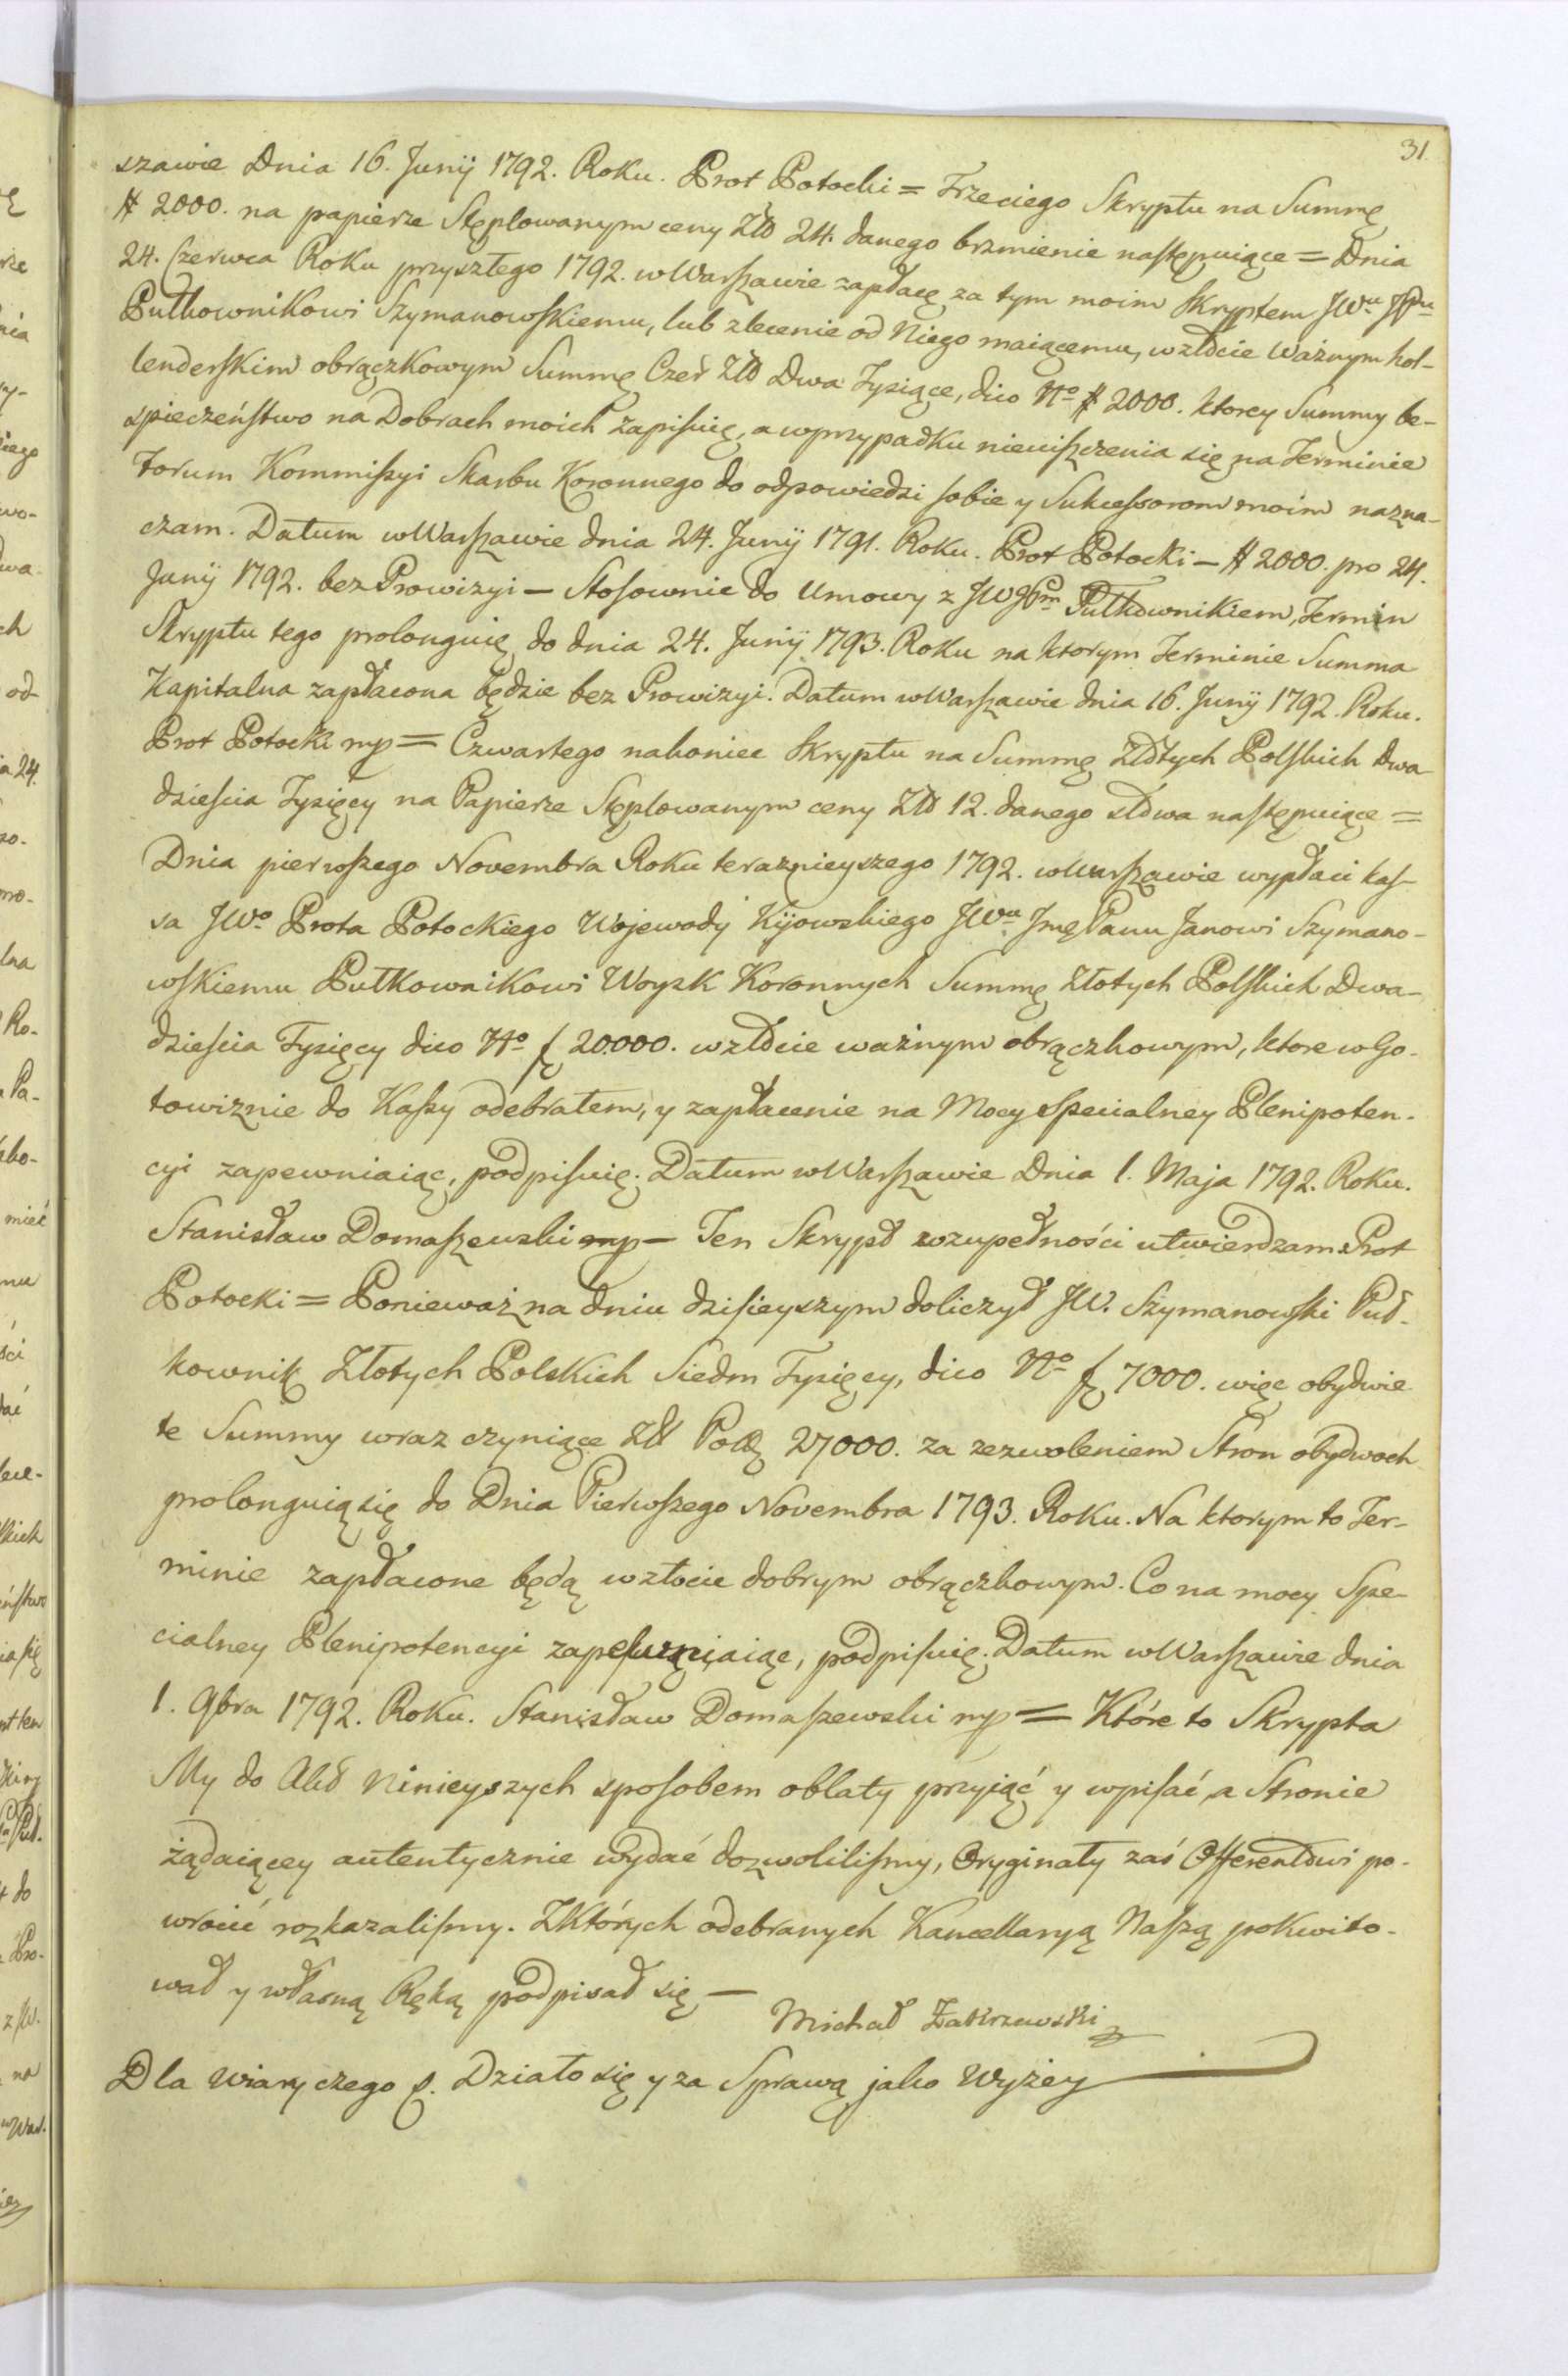 31.
szawie Dnia 16. Junij 1792. Roku. Prot Potocki = Trzeciego Skryptu na Summę
# 2000. na papierze Stęplowanym ceny Złł 24. danego brzmienie następuiące = Dnia
24. Czerwca Roku przyszłego 1792. w Warszawie zapłacę za tym moim Skryptem JWu JPu
Pułkownikowi Szymanowskiemu, lub zlecenie od Niego maiącemu, w złocie Ważnym hol-
lenderskim obrączkowym Summę Czer Złł Dwa Tysiące, dico No # 2000. ktorey Summy be-
spieczeństwo na Dobrach moich zapisuię, a w przypadku nieuiszczenia się na Terminie
Forum Kommissyi Skarbu Koronnego do odpowiedzi sobie y Sukcessorom moim nazna-
czam. Datum w Warszawie dnia 24. Junij 1791. Roku. Prot Potocki — # 2000. pro 24.
Junij 1792. bez Prowizyi — Stosownie do Umowy z JWJPm Pułkownikiem, Termin
Skryptu tego prolonguię do dnia 24. Junij 1793. Roku na ktorym Terminie Summa
Kapitalna zapłacona będzie bez Prowizyi. Datum w Warszawie dnia 16. Junij 1792. Roku.
Prot Potocki mp = Czwartego nakoniec Skryptu na Summę Złotych Polskich Dwa
dziescia Tysięcy na Papierze Stęplowanym ceny Złł 12. danego słowa następuiące =
Dnia pierwszego Novembra Roku teraznieyszego 1792. w Warszawie wypłaci kas-
sa JWo Prota Potockiego Wojewody Kijowskiego JWu Jmę Panu Janowi Szymano-
wskiemu Pułkownikowi Woysk Koronnych Summę Złotych Polskich Dwa-
dziescia Tysięcy dico No f 20000. w złocie ważnym obrączkowym, ktore w Go-
towiznie do Kassy odebrałem, y zapłacenie na Mocy specialney Plenipoten-
cyi zapewniaiąc, podpisuię. Datum w Warszawie Dnia 1. Maja 1792. Roku.
Stanisław Domaszewski mp — Ten Skrypt w zupełności utwierdzam Prot
Potocki = Ponieważ na dniu dzisieyszym doliczył JW. Szymanowski Puł-
kownik Złotych Polskich Siedm Tysięcy, dico No f 7000. więc obydwie
te Summy wraz czyniące Złł Polł 27000. za zezwoleniem Stron obydwoch
prolonguią się do Dnia Pierwszego Novembra 1793. Roku. Na ktorym to Ter-
minie zapłacone będą w złocie dobrym obrączkowym. Co na mocy Spe-
cialney Plenipotencyi zapewniaiąc, podpisuię. Datum w Warszawie dnia
1. 9bra 1792. Roku. Stanisław Domaszewski mp = Które to Skrypta
My do Akt Ninieyszych sposobem oblaty przyiąć y wpisać, a Stronie
żądaiącey autentycznie wydać dozwolilismy, Oryginały zaś Offerentowi po-
wrocić rozkazalismy. Z Których odebranych Kancellaryą Naszą pokwito-
wał y własną Ręką podpisał się —
Michał Zakrzewski
Dla wiary czego p. Działo się y za Sprawą jako Wyżey